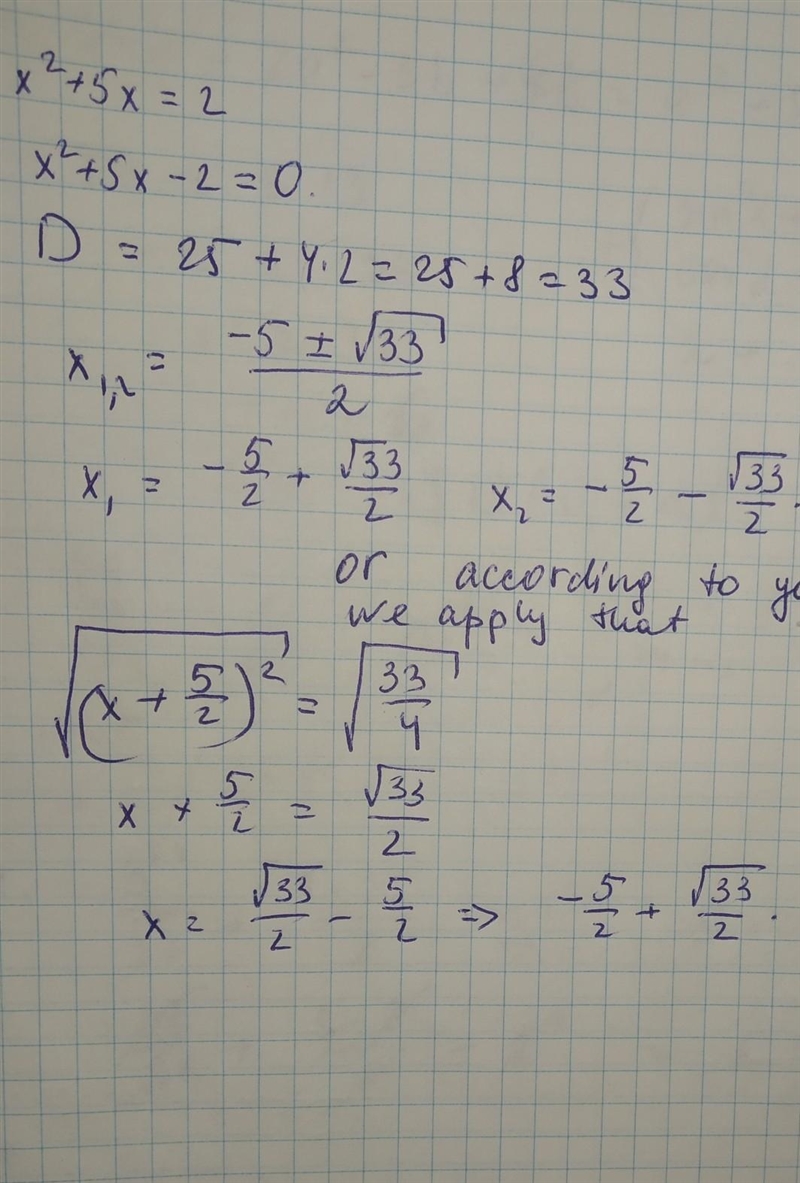 x² + 5x = 2
x² + 5x - 2 = 0.
D = 25 + 4·2 = 25 + 8 = 33
x₁,₂ = (-5 ± √33)/2
x₁ = -5/2 + √33/2    x₂ = -5/2 - √33/2.
or according to
we apply that
√((x + 5/2)²) = √(33/4)
x + 5/2 = √33/2
x = √33/2 - 5/2 => -5/2 + √33/2.